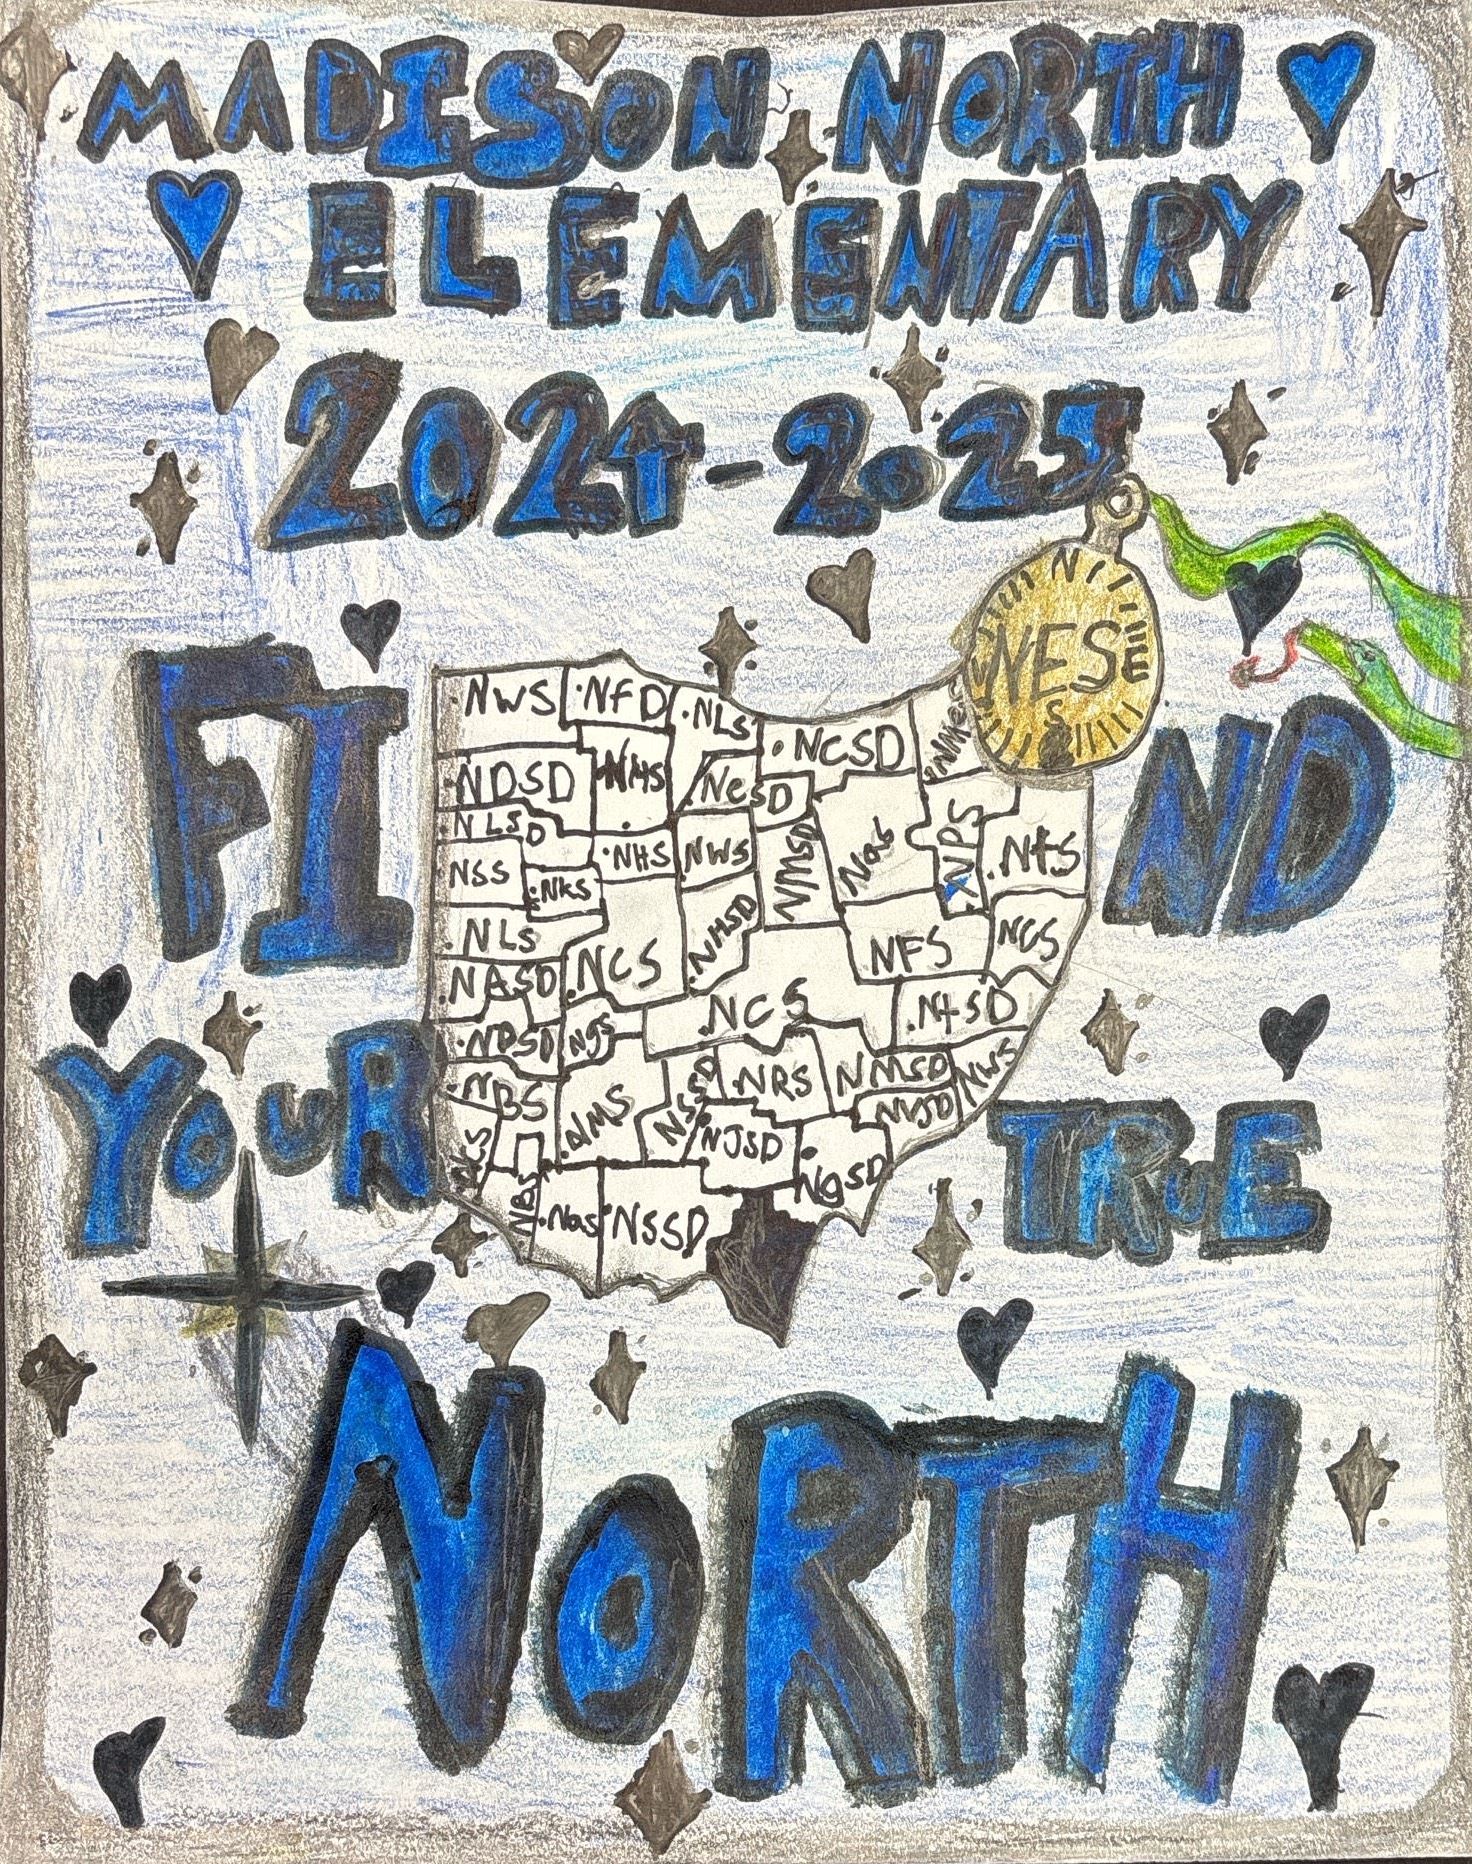 MADISON NORTH
ELEMENTARY
2024-2025
N
NESE
S
FIND
NWS
NFD
NLS
NCSD
NDSD
NHS
NCSD
NLSD
NSS
NKS
NHS
NWS
NMSD
NPS
NtS
NLS
NCS
NHSD
NFS
NCS
NASD
NCS
NtSD
NDSD
NJS
YOUR
NBS
NMS
NRS
NMSD
NWS
NJSD
NVSD
NgSD
NBS
NaS
NSSD
TRuE
NoRTH